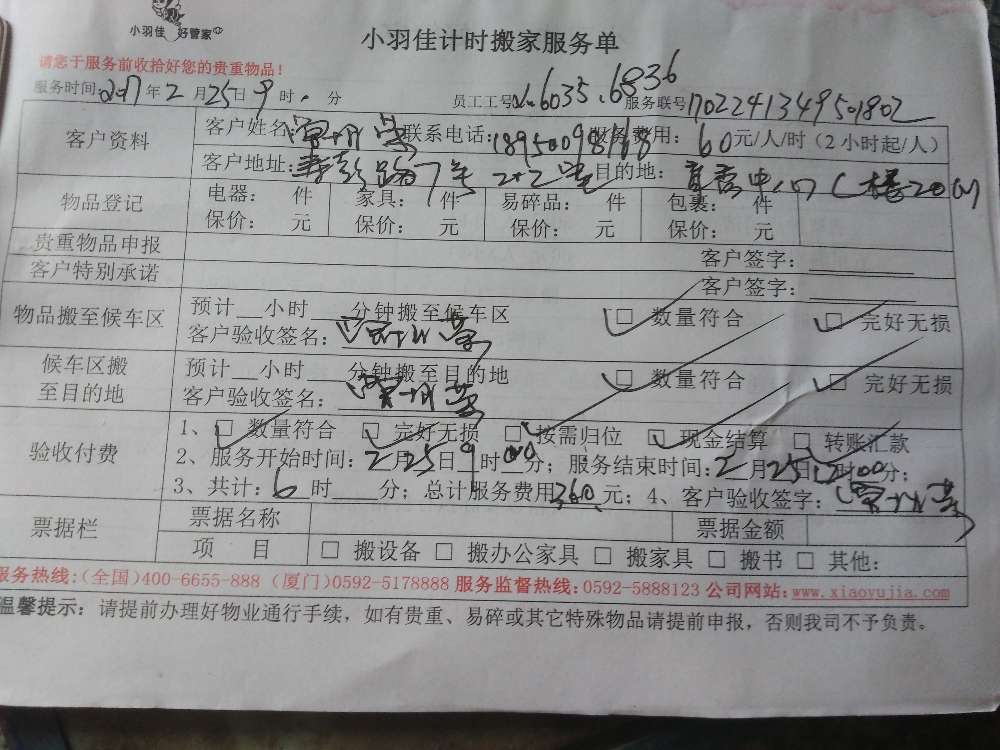 小羽佳 好管家
小羽佳计时搬家服务单
请您于服务前收拾好您的贵重物品!
服务时间:2017年2月25日9时 分 员工工号 6035.6836 服务联号1702241349501802
客户资料 客户姓名: 联系电话: 服务费用: 60元/人/时(2小时起/人)
客户地址: 路7号 目的地: 中心
物品登记 电器: 件 家具: 件 易碎品: 件 包裹: 件
保价: 元 保价: 元 保价: 元 保价: 元
贵重物品申报 客户签字:
客户特别承诺 客户签字:
物品搬至候车区 预计__小时____分钟搬至候车区 □ 数量符合 □ 完好无损
客户验收签名:
候车区搬至目的地 预计__小时____分钟搬至目的地 □ 数量符合 □ 完好无损
客户验收签名:
验收付费 1、□ 数量符合 □ 完好无损 □ 按需归位 □ 现金结算 □ 转账汇款
2、服务开始时间:2月25日9时00分;服务结束时间:2月25日12时00分;
3、共计:6时____分;总计服务费用360元;4、客户验收签字:
票据栏 票据名称 票据金额
项 目 □ 搬设备 □ 搬办公家具 □ 搬家具 □ 搬书 □ 其他:
服务热线:(全国)400-6655-888 (厦门)0592-5178888 服务监督热线:0592-5888123 公司网站:www.xiaoyujia.com
温馨提示:请提前办理好物业通行手续,如有贵重、易碎或其它特殊物品请提前申报,否则我司不予负责。